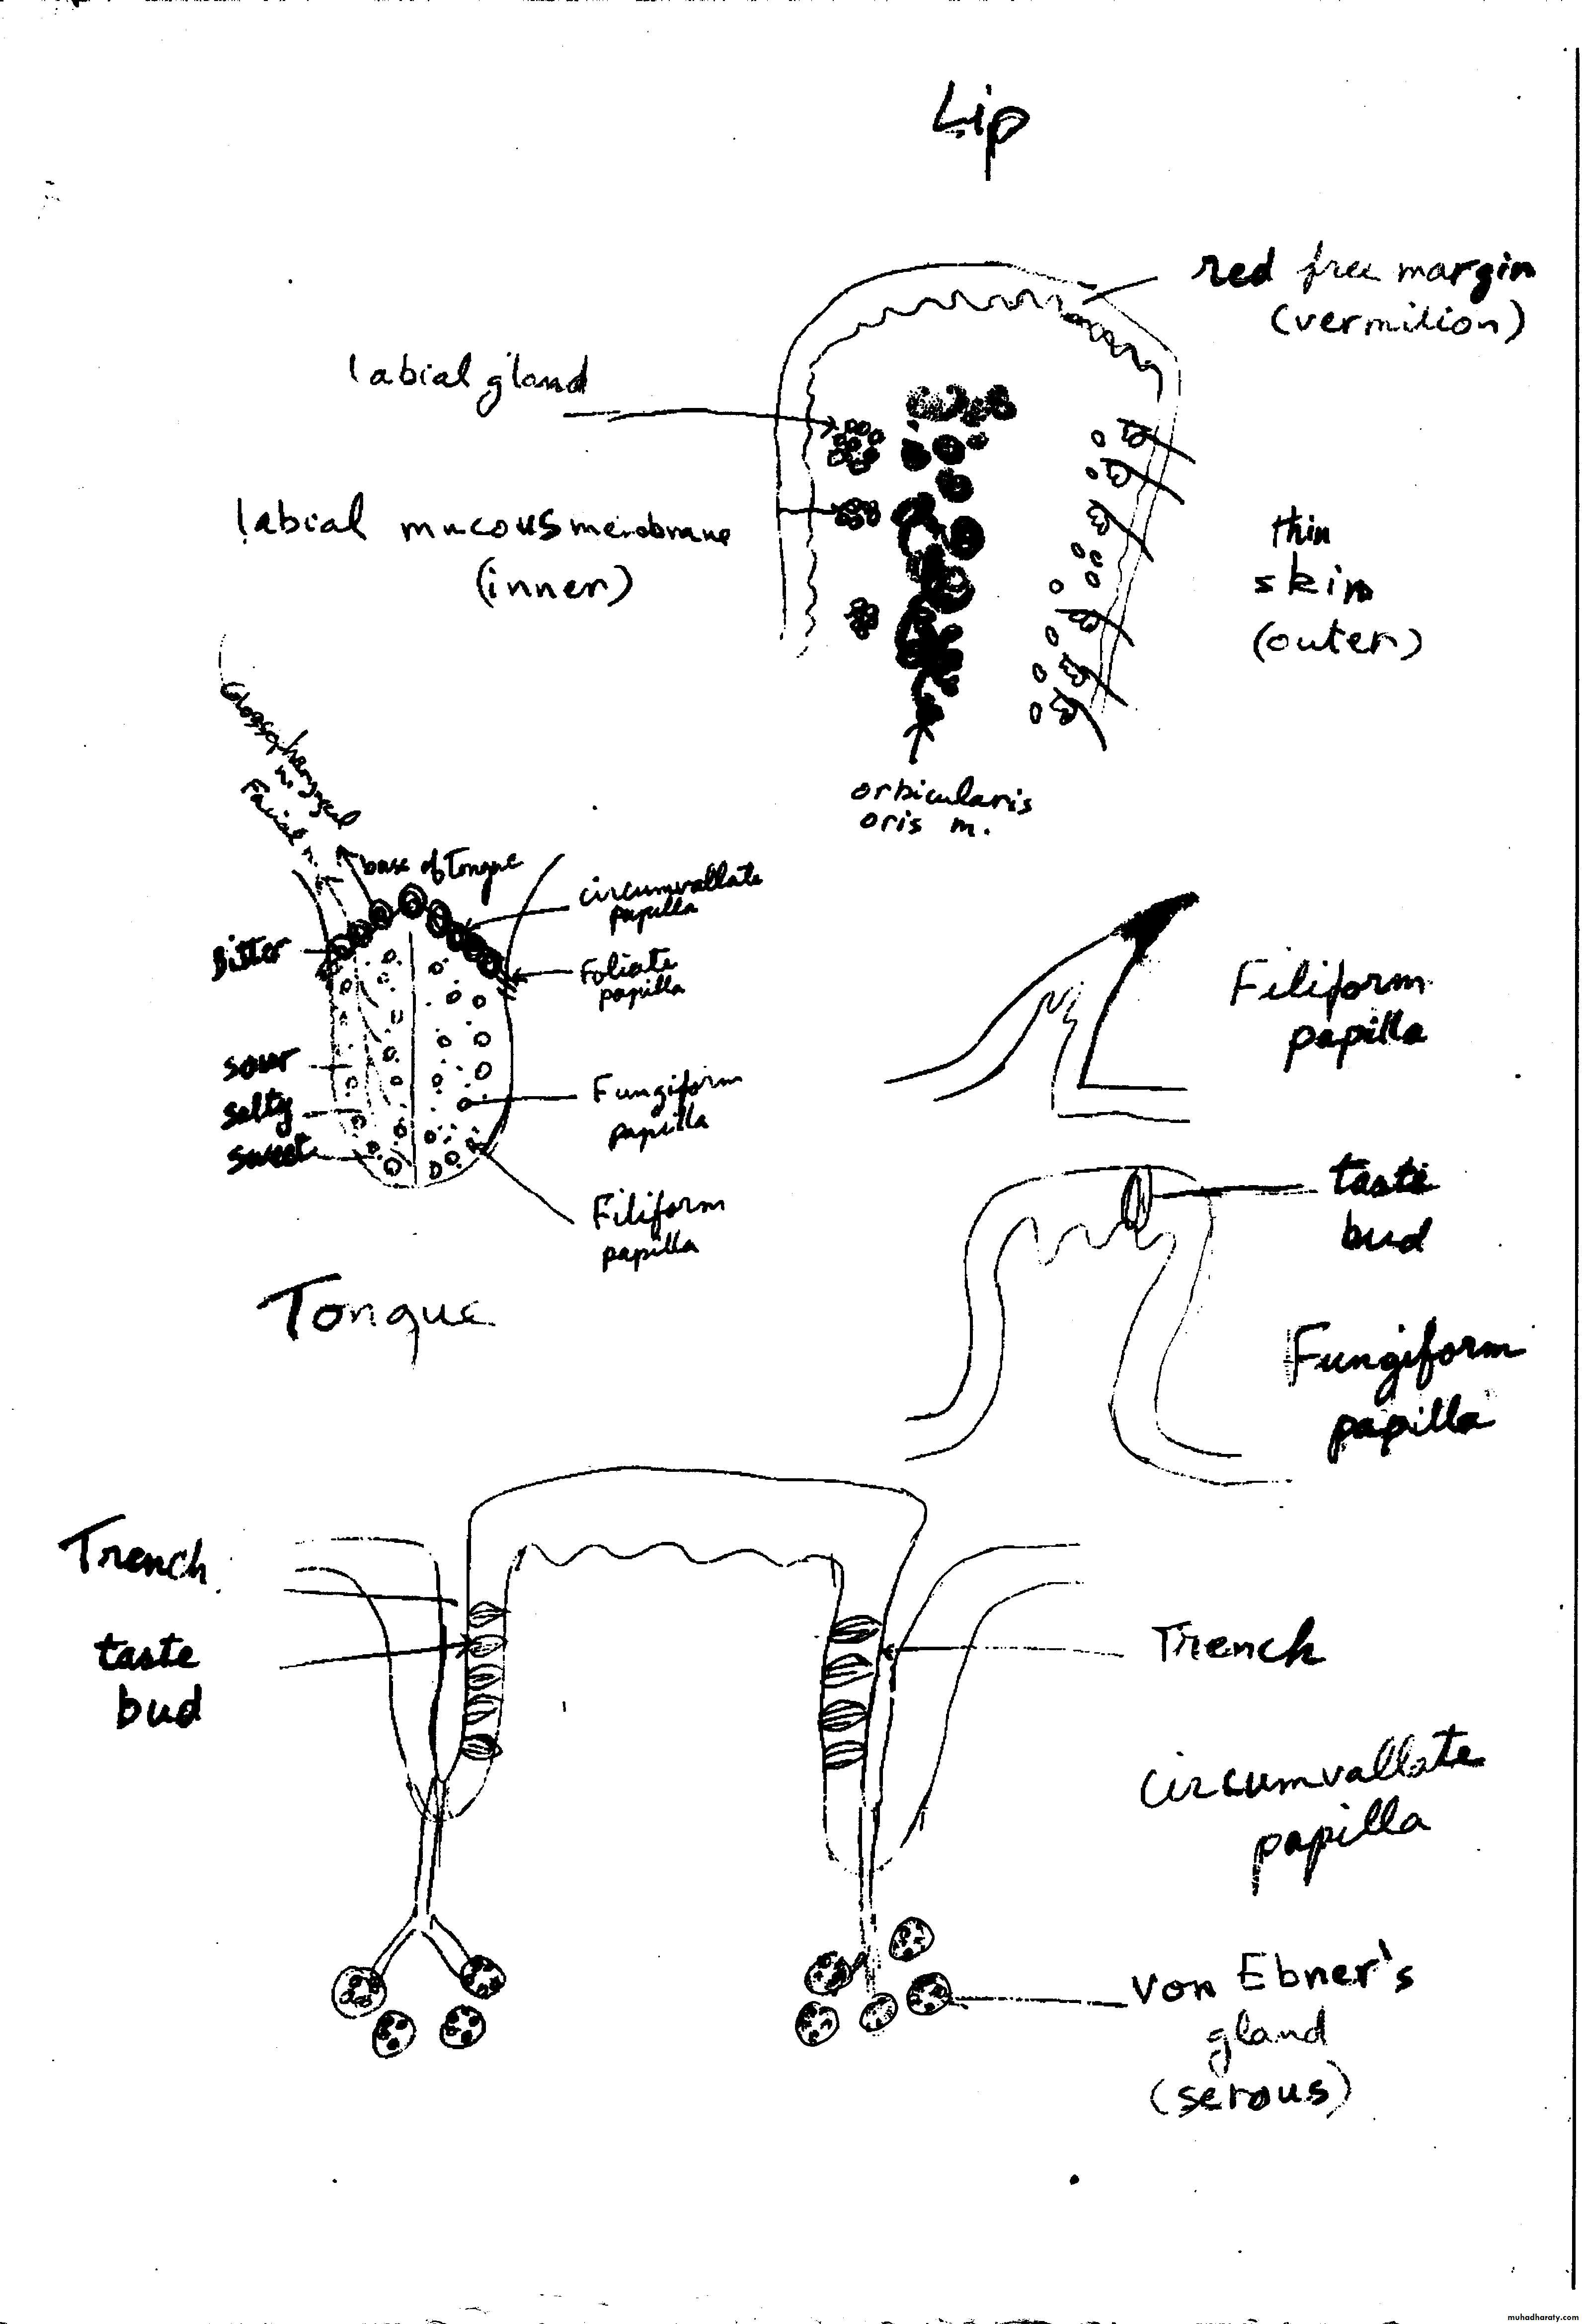 Lip
red free margin
(vermilion)
labial gland
labial mucous membrane
(inner)
thin
skin
(outer)
orbicularis
oris m.
Glossopharyngeal
n.
Facial n.
base of Tongue
circumvallate
papilla
Bitter
Foliate
papilla
sour
salty
sweet
Fungiform
papilla
Filiform
papilla
Tongue
Filiform
papilla
taste
bud
Fungiform
papilla
Trench
taste
bud
Trench
circumvallate
papilla
Von Ebner's
gland
(serous)
muhadharaty.com